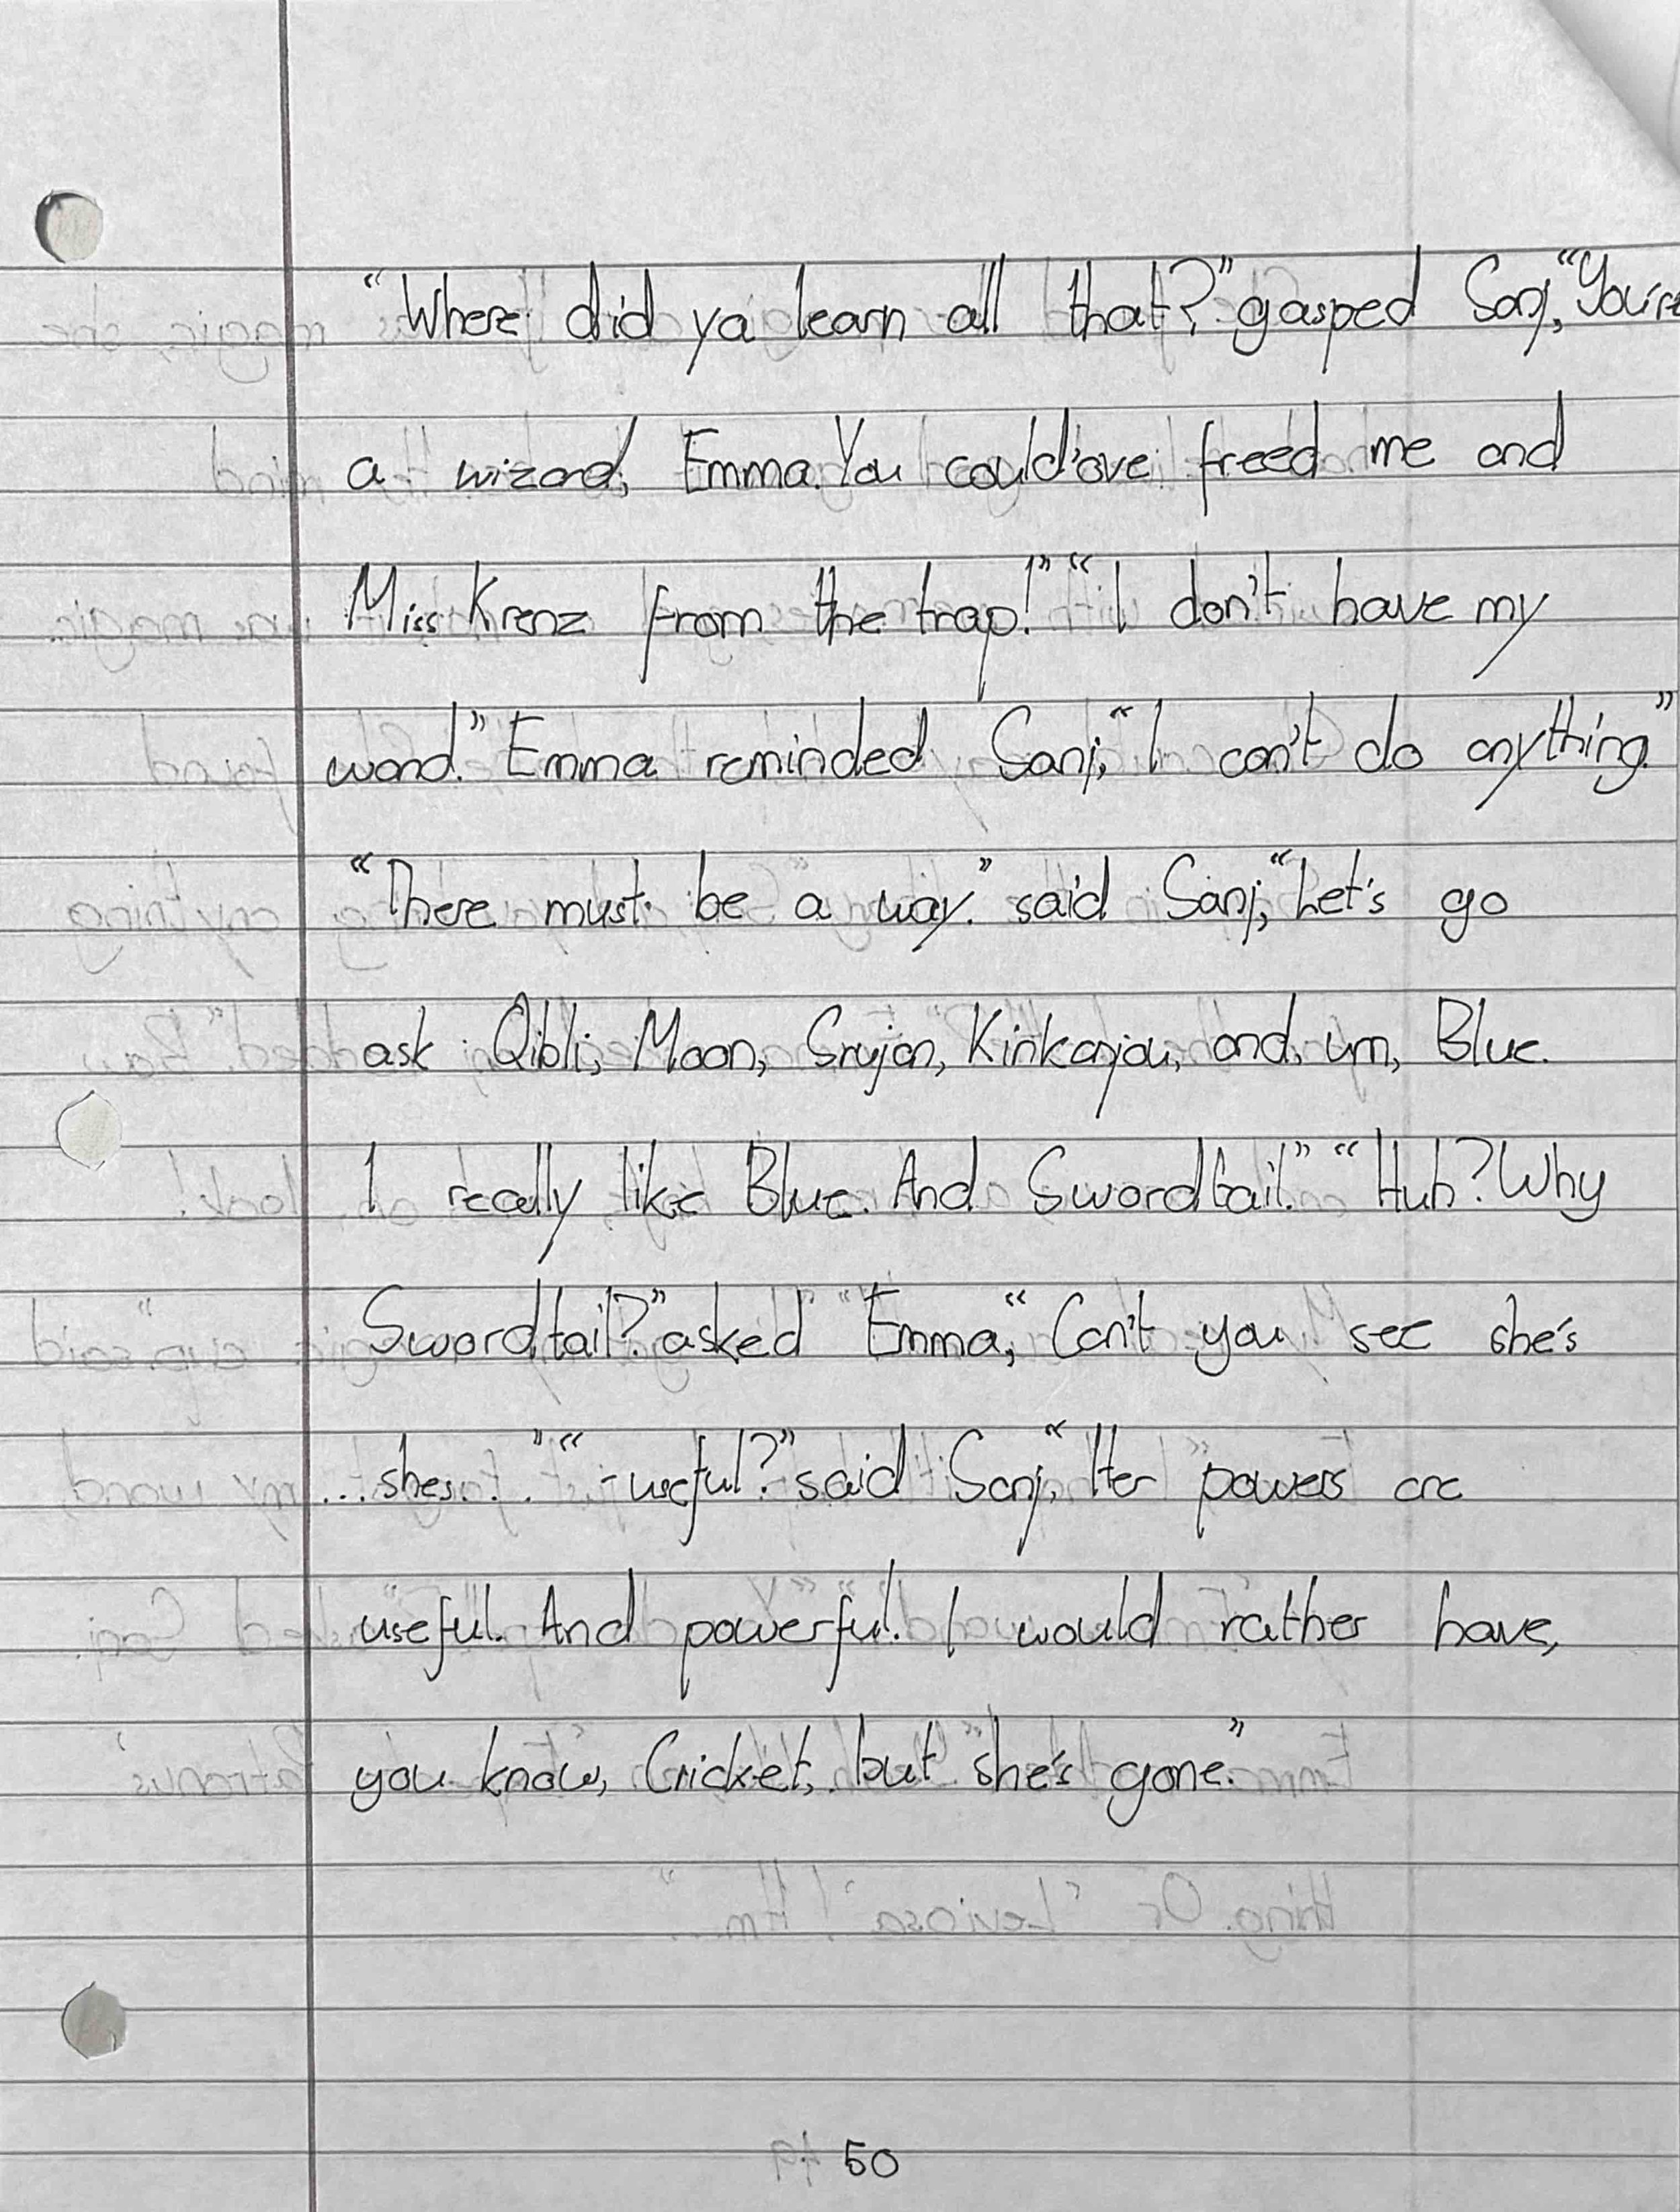 "Where did ya learn all that?" gasped Sanj, "You're
a wizard, Emma. You could'ove freed me and
Miss Krenz from the trap!" "I don't have my
wand." Emma reminded Sanj, "I can't do anything."
"There must be a way." said Sanj, "Let's go
ask Qibli, Moon, Srujan, Kinkajou, and, um, Blue.
I really like Blue. And Swordtail." "Huh? Why
Swordtail?" asked Emma, "Can't you see she's
...she's..." "-useful?" said Sanj, "Her powers are
useful. And powerful. I would rather have,
you know, Cricket, but she's gone."
50